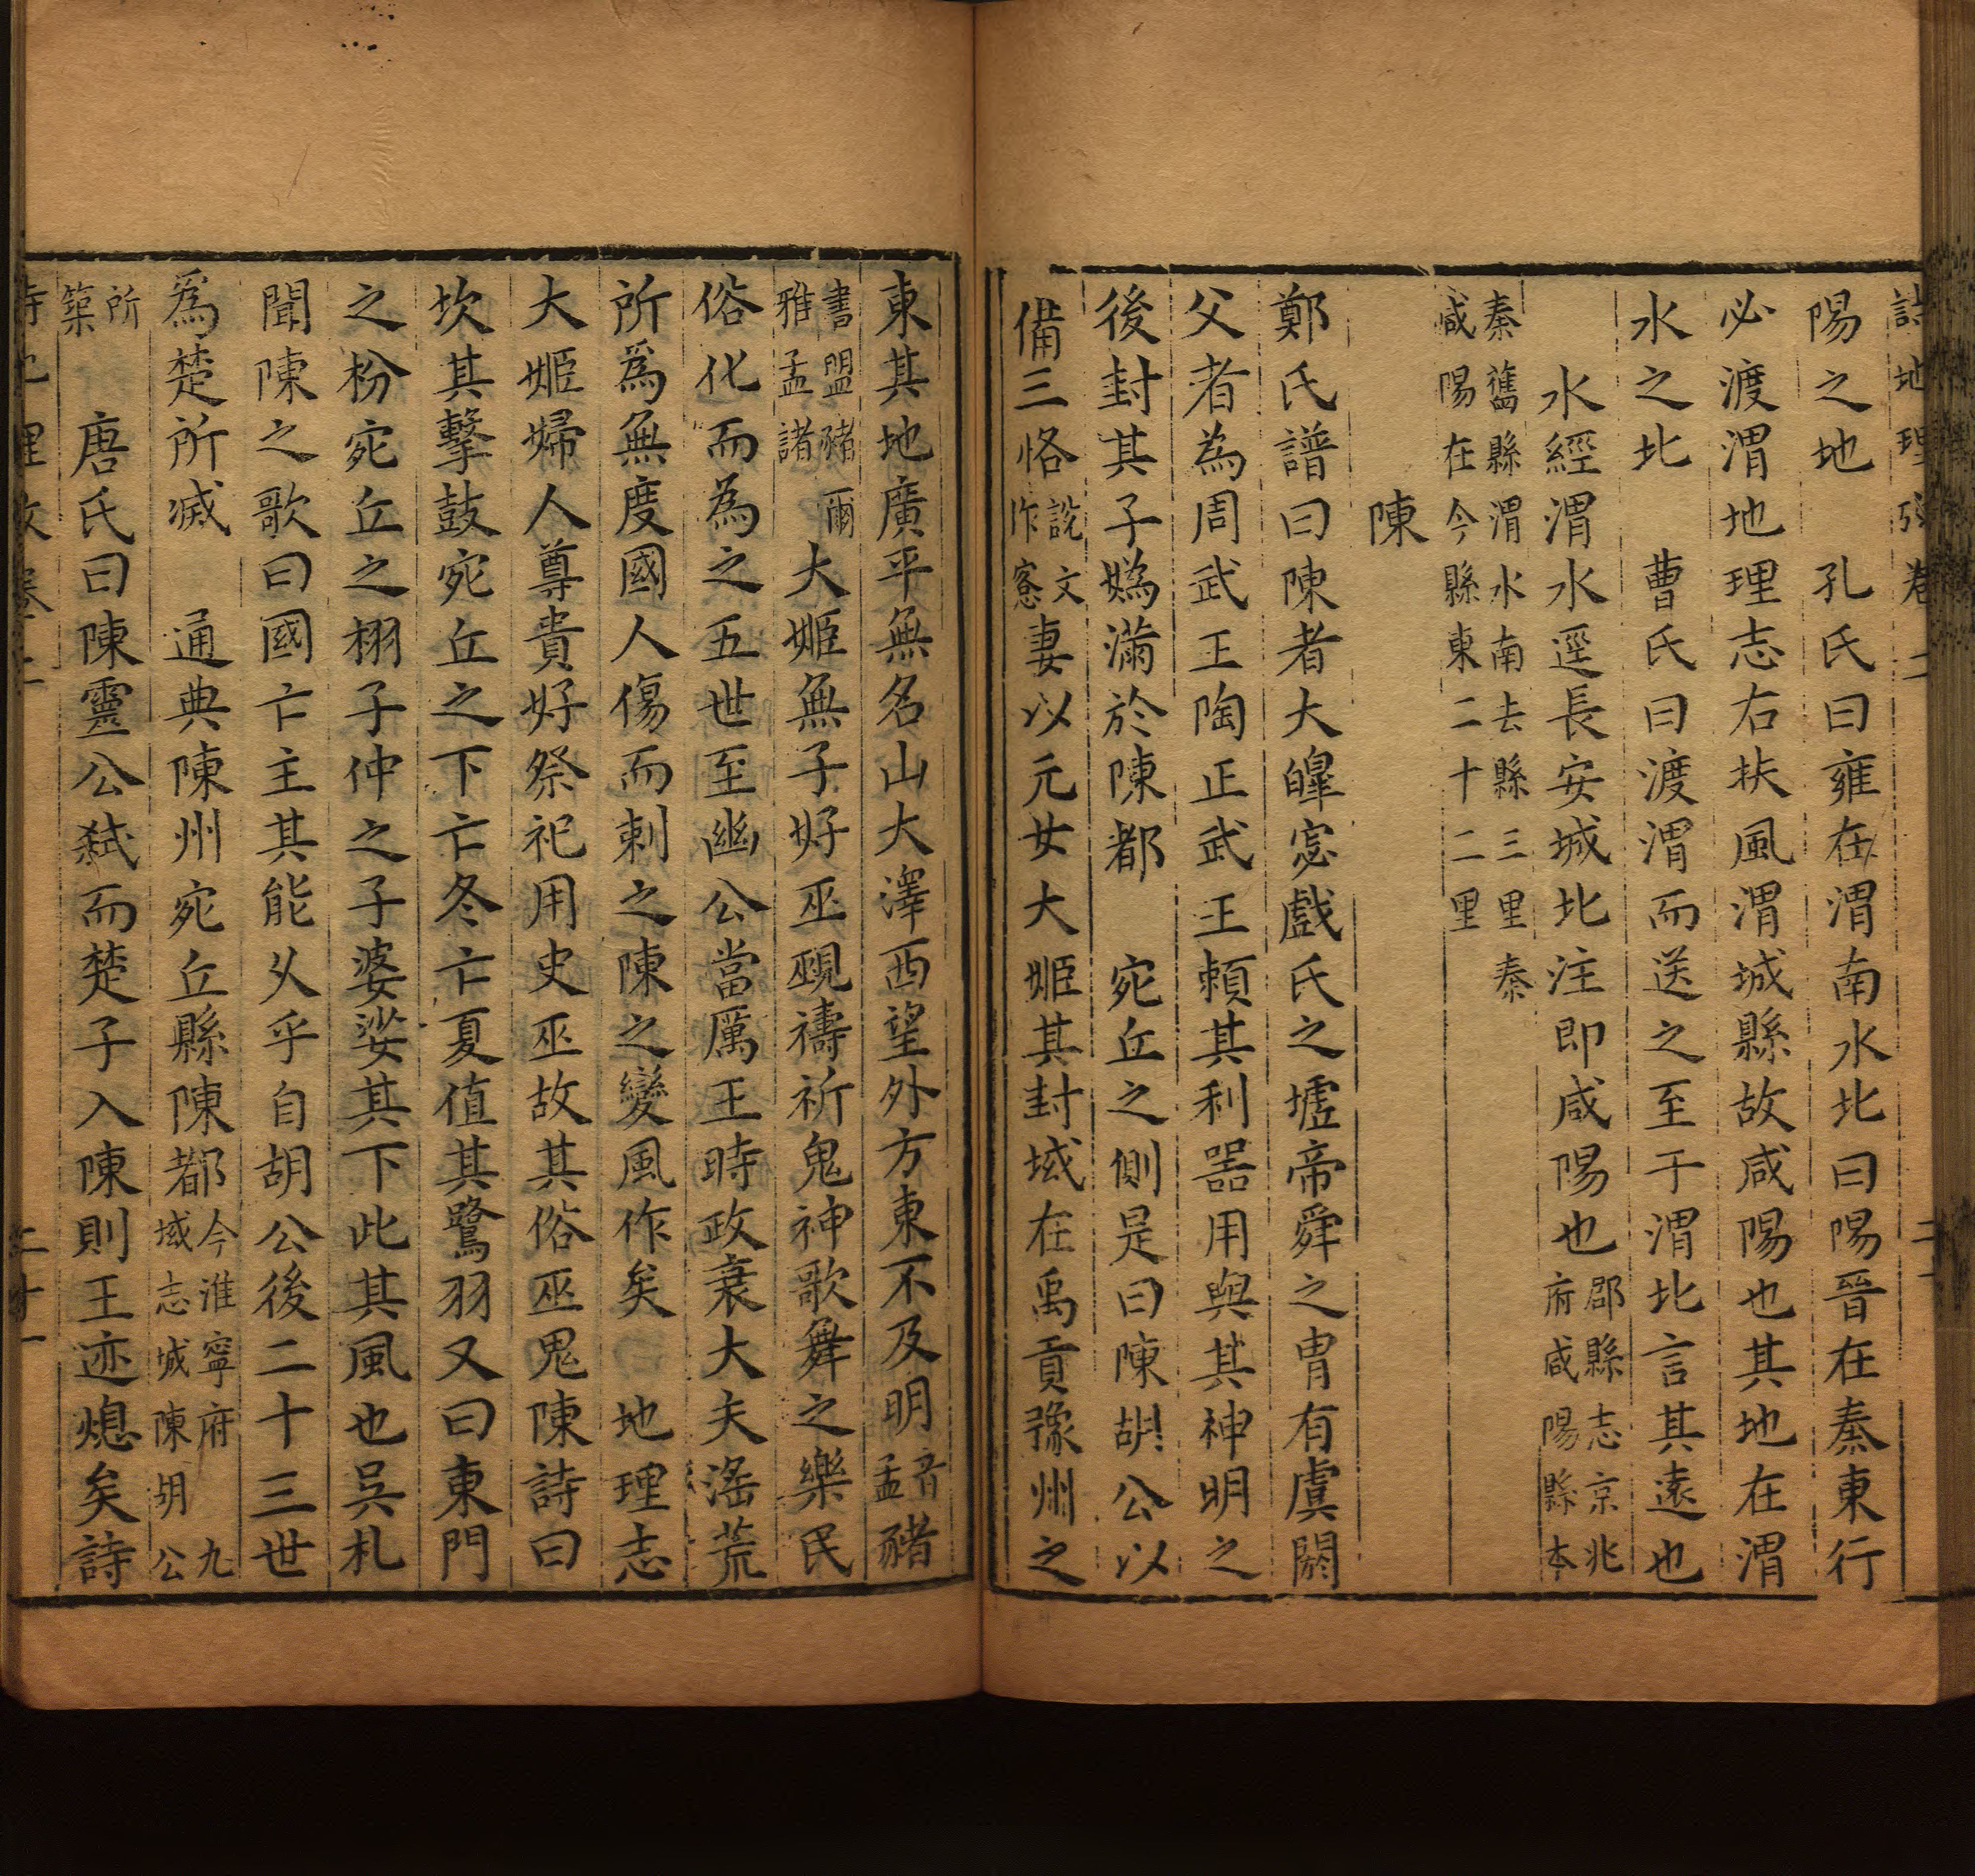 陽之地　孔氏曰雍在渭南水北曰陽晉在秦東行
必渡渭地理志右扶風渭城縣故咸陽也其地在渭
水之北　曹氏曰渡渭而送之至于渭北言其遠也
水經渭水逕長安城北注即咸陽也郡縣志京兆府咸陽縣本
秦舊縣渭水南去縣三里秦咸陽在今縣東二十二里
陳
鄭氏譜曰陳者大皥宓戲氏之墟帝舜之胄有虞閼
父者為周武王陶正武王賴其利器用與其神明之
後封其子媯滿於陳都　宛丘之側是曰陳胡公以
備三恪說文作愙妻以元女大姬其封域在禹貢豫州之
東其地廣平無名山大澤西望外方東不及明音孟豬
書盟豬爾雅孟諸大姬無子好巫覡禱祈鬼神歌舞之樂民
俗化而為之五世至幽公當厲王時政衰大夫淫荒
所爲無度國人傷而刺之陳之變風作矣　地理志
大姬婦人尊貴好祭祀用史巫故其俗巫鬼陳詩曰
坎其擊鼓宛丘之下亡冬亡夏值其鷺羽又曰東門
之枌宛丘之栩子仲之子婆娑其下此其風也吳札
聞陳之歌曰國亡主其能久乎自胡公後二十三世
爲楚所滅　通典陳州宛丘縣陳都今淮寧府九域志城陳胡公
所築　唐氏曰陳靈公弑而楚子入陳則王迹熄矣詩